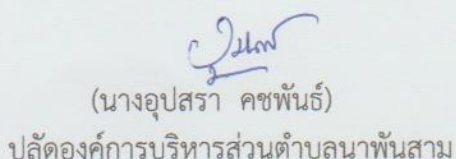 (นางอุปสรา คชพันธ์)
ปลัดองค์การบริหารส่วนตำบลนาพันสาม